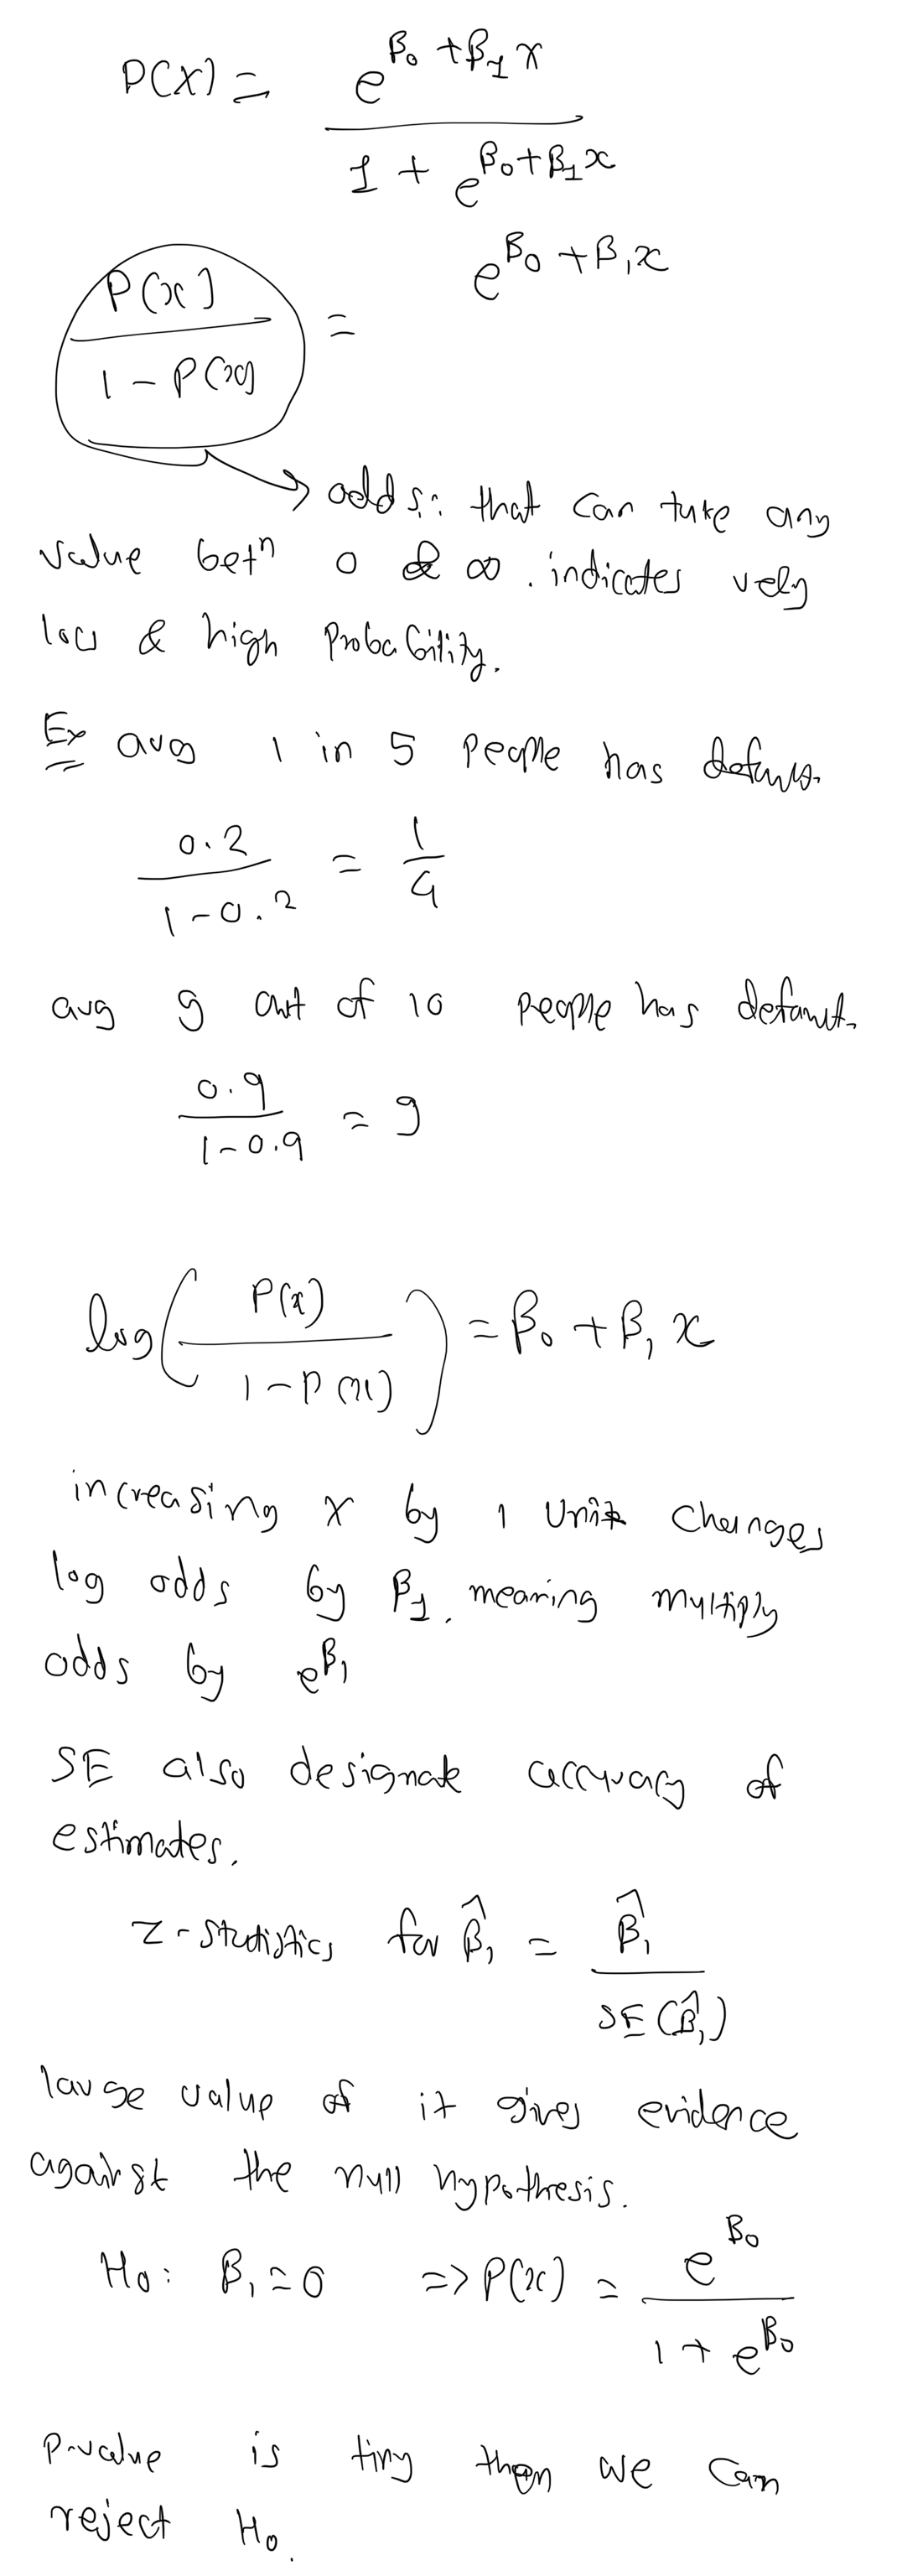 P(X) = e^{β₀ + β₁x} / (1 + e^{β₀+β₁x})
P(x) / (1 - P(x)) = e^{β₀ + β₁x}
→ odds: that can take any
value betⁿ 0 & ∞. indicates very
low & high Probability.
Ex avg 1 in 5 people has default.
0.2 / (1-0.2) = 1/4
avg 9 out of 10 people has default.
0.9 / (1-0.9) = 9
log(P(x) / (1-P(x))) = β₀ + β₁x
increasing x by 1 Unit changes
log odds by β₁. meaning multiply
odds by e^{β₁}
SE also designate accuracy of
estimates.
z-statistics for β̂₁ = β̂₁ / SE(β̂₁)
large value of it gives evidence
against the null hypothesis.
H₀: β₁ = 0 => P(x) = e^{β₀} / (1 + e^{β₀})
P-value is tiny then we can
reject H₀.